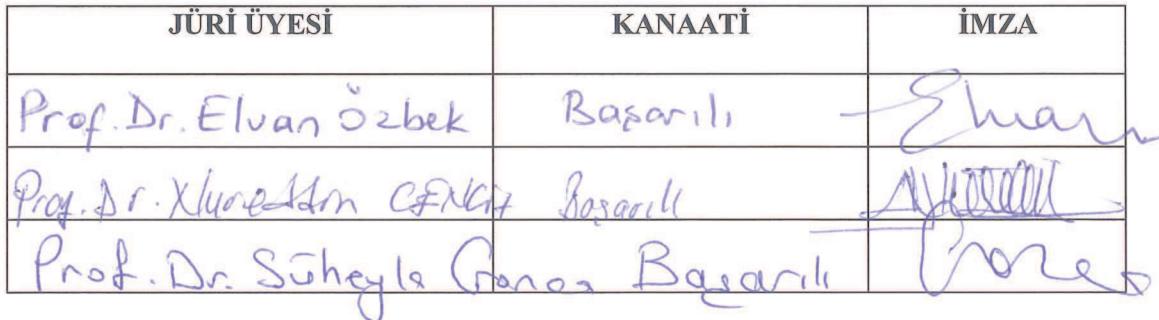 JÜRİ ÜYESİ KANAATİ İMZA
Prof. Dr. Elvan Özbek Başarılı Elvan
Prof. Dr. Nurettin CENGİZ Başarılı
Prof. Dr. Süheyla Başarılı